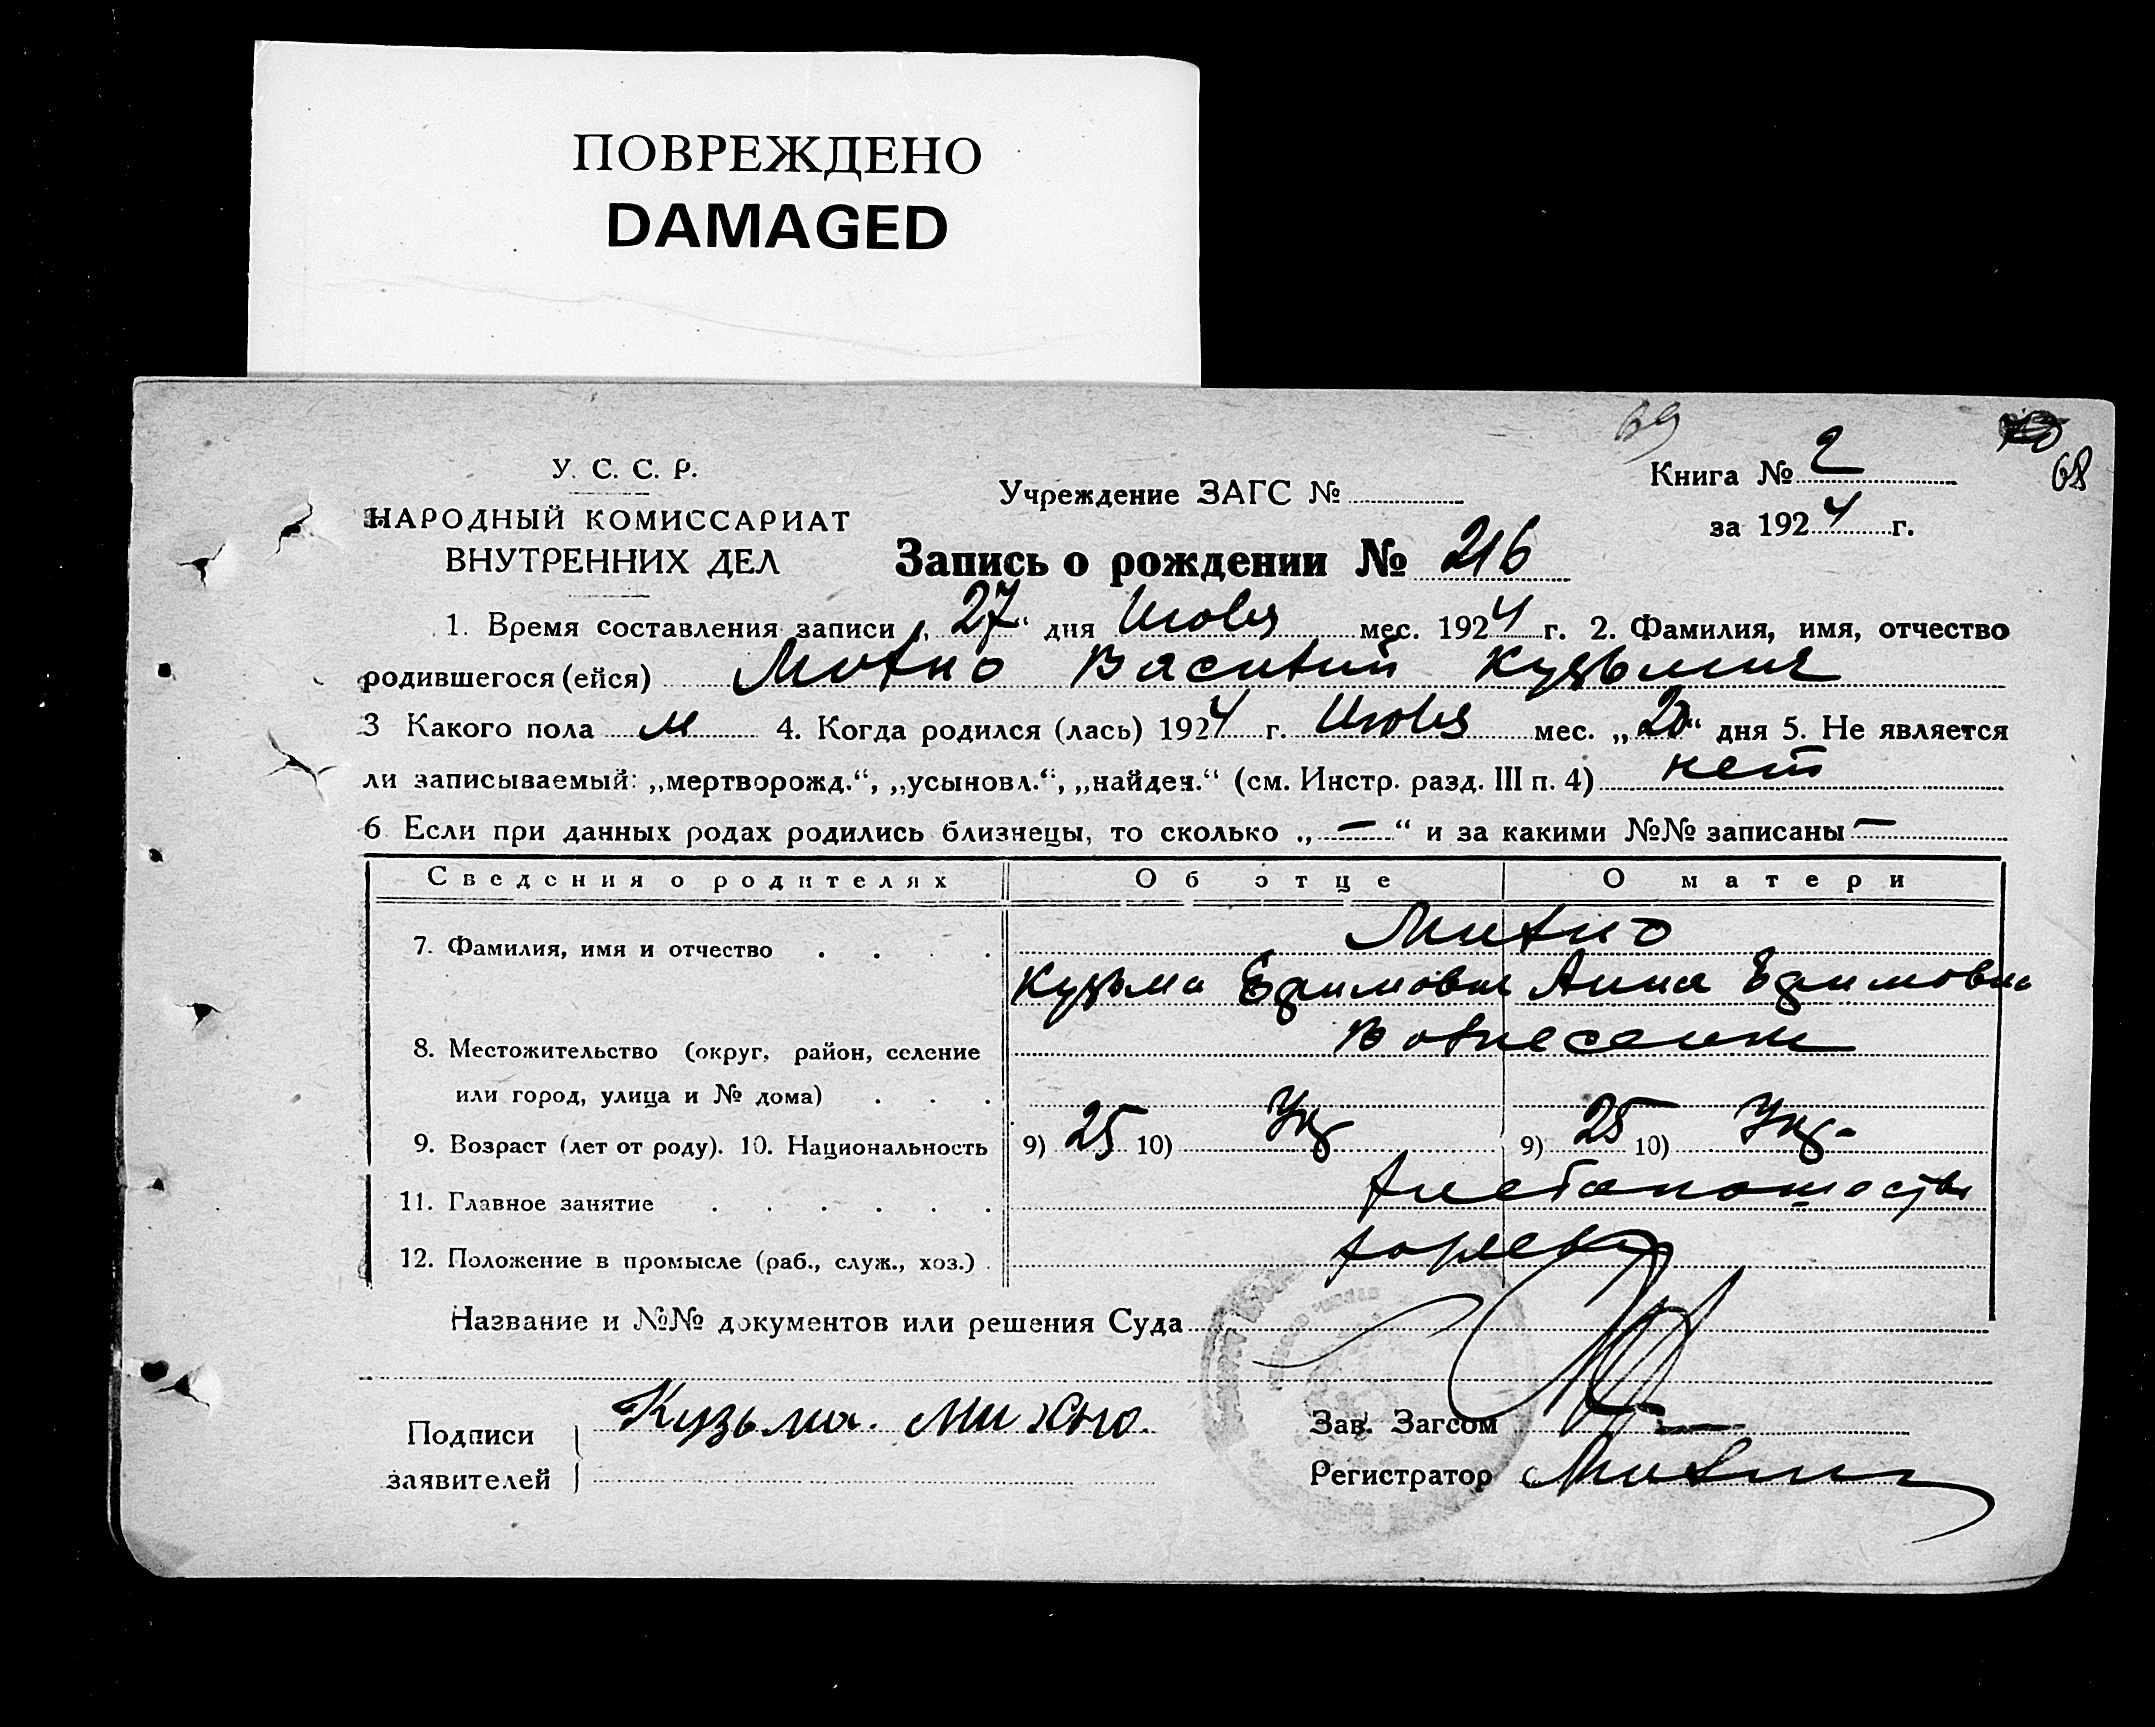 ПОВРЕЖДЕНО
DAMAGED
69
68
У. С. С. Р.
НАРОДНЫЙ КОМИССАРИАТ
ВНУТРЕННИХ ДЕЛ
Учреждение ЗАГС №
Книга № 2
за 1924 г.
Запись о рождении № 216
1. Время составления записи „27“ дня Июля мес. 1924 г. 2. Фамилия, имя, отчество
родившегося (ейся) Михно Василий Кузьмич
3 Какого пола м 4. Когда родился (лась) 1924 г. Июля мес. „20“ дня 5. Не является
ли записываемый: „мертворожд.“, „усыновл.“, „найден.“ (см. Инстр. разд. III п. 4) нет
6 Если при данных родах родились близнецы, то сколько „—“ и за какими №№ записаны —
Сведения о родителях Об отце О матери
7. Фамилия, имя и отчество . . . . Михно
Кузьма Ефимович Анна Ефимовна
8. Местожительство (округ, район, селение
или город, улица и № дома) . . .
9. Возраст (лет от роду). 10. Национальность 9) 25 10) Укр 9) 25 10) Укр.
11. Главное занятие . . . . . . хлебопашество
12. Положение в промысле (раб., служ., хоз.) .
Название и №№ документов или решения Суда
Подписи заявителей Кузьма Михно.
Зав. Загсом
Регистратор